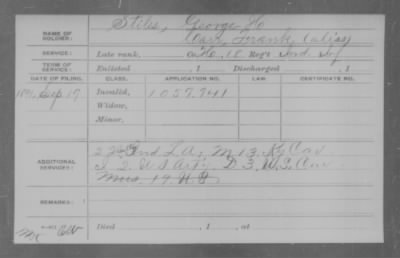 NAME OF SOLDIER: Stiles, George H.
Carr, Frank (alias)
SERVICE: Late rank, Co. 18 Reg't Ind Inf
TERM OF SERVICE: Enlisted , 1 Discharged , 1
DATE OF FILING. CLASS. APPLICATION NO. LAW. CERTIFICATE NO.
Sep 17 Invalid, 1057.741
Widow,
Minor,
ADDITIONAL SERVICES: 2 Ind L.A., M 13 Ky Cav
I 2 U S Arty, D 3 U.S. Cav
19
REMARKS:
Died , 1 , at